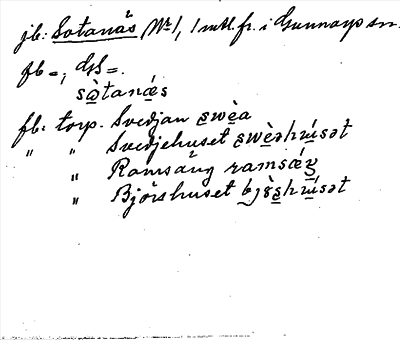 jb: Sotanäs /Nr/, 1 mtl. fr. i Gunnarps sn.
fb =; GS =.
sὼtanǽs
fb: torp. Svedjan swèa
" " Svedjehuset swèəhúsət
" Ramsäng ramsǽŋ
" Björshuset bjòshúsət